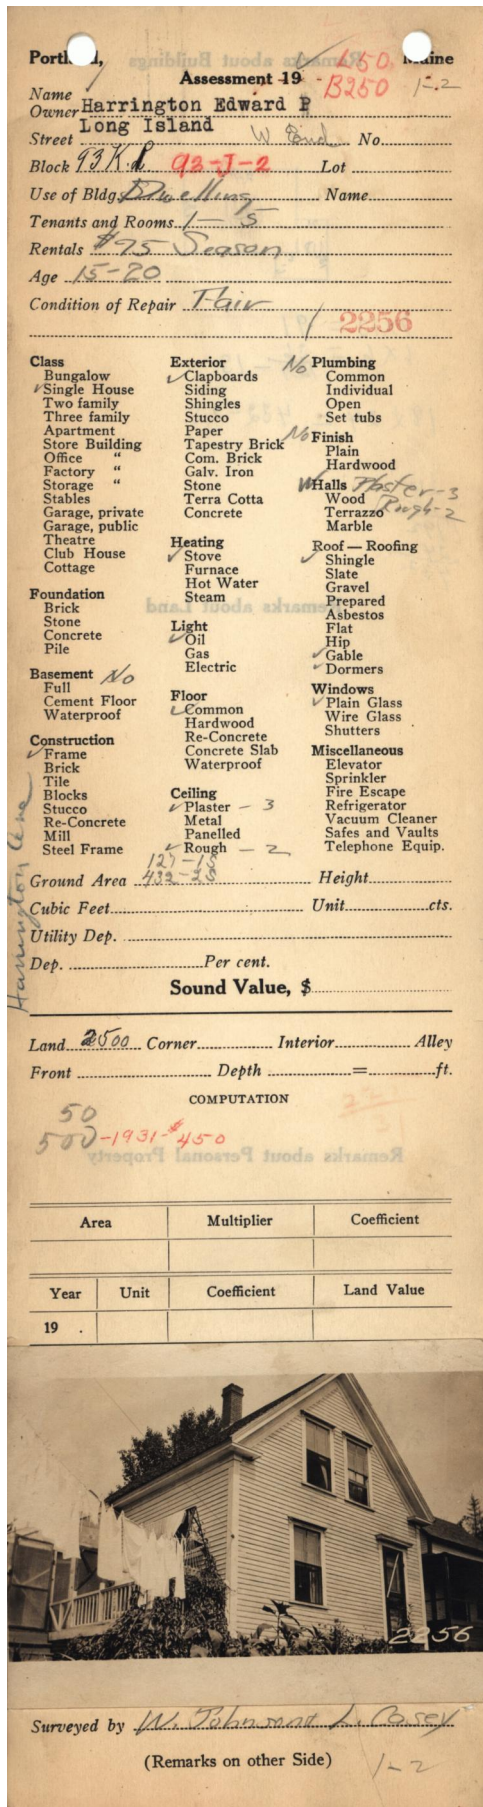 Portland, Maine
Assessment 19
L50
B250
1-2
Name
Owner Harrington Edward P
Street Long Island W End No.
Block 93K.L 93-J-2 Lot
Use of Bldg. Dwelling Name
Tenants and Rooms 1-5
Rentals $75 Season
Age 15-20
Condition of Repair Fair
2256
Class
Bungalow
✓ Single House
Two family
Three family
Apartment
Store Building
Office "
Factory "
Storage "
Stables
Garage, private
Garage, public
Theatre
Club House
Cottage
Foundation
Brick
Stone
Concrete
Pile
Basement No
Full
Cement Floor
Waterproof
Construction
✓ Frame
Brick
Tile
Blocks
Stucco
Re-Concrete
Mill
Steel Frame
Exterior
✓ Clapboards
Siding
Shingles
Stucco
Paper
Tapestry Brick
Com. Brick
Galv. Iron
Stone
Terra Cotta
Concrete
Heating
✓ Stove
Furnace
Hot Water
Steam
Light
✓ Oil
Gas
Electric
Floor
✓ Common
Hardwood
Re-Concrete
Concrete Slab
Waterproof
Ceiling
✓ Plaster - 3
Metal
Panelled
✓ Rough - 2
No Plumbing
Common
Individual
Open
Set tubs
No Finish
Plain
Hardwood
Walls Plaster-3
Wood Rough-2
Terrazzo
Marble
Roof — Roofing
✓ Shingle
Slate
Gravel
Prepared
Asbestos
Flat
Hip
✓ Gable
✓ Dormers
Windows
✓ Plain Glass
Wire Glass
Shutters
Miscellaneous
Elevator
Sprinkler
Fire Escape
Refrigerator
Vacuum Cleaner
Safes and Vaults
Telephone Equip.
Harrington Lane
127-15
Ground Area 432-25 Height
Cubic Feet Unit cts.
Utility Dep.
Dep. Per cent.
Sound Value, $
Land 2500 Corner Interior Alley
Front Depth = ft.
COMPUTATION
50
500-1931-$450
Area Multiplier Coefficient
Year Unit Coefficient Land Value
19 .
2256
Surveyed by W. Johnson & L. Casey
(Remarks on other Side)
1-2